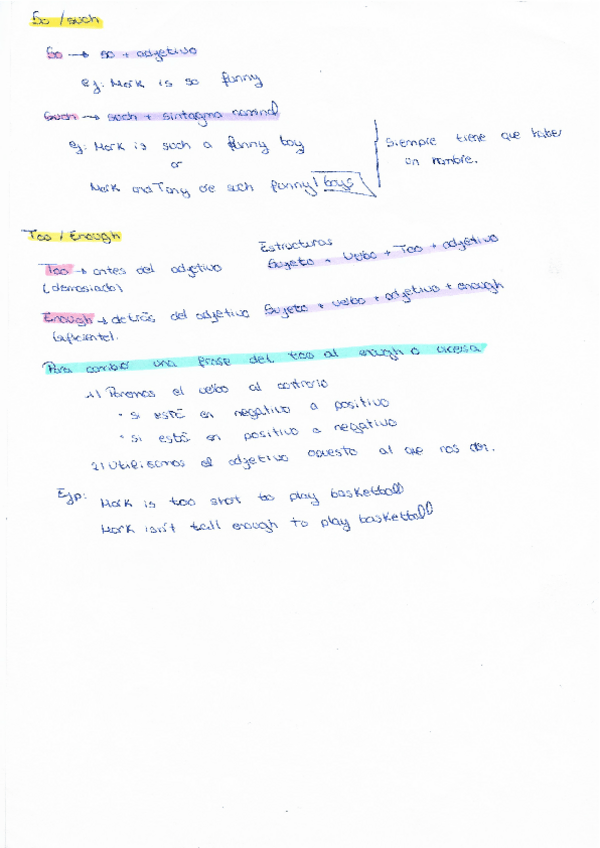 So / such
So → so + adjetivo
ej: Mark is so funny
Such → such + sintagma nominal
Ej: Mark is such a funny boy
or
Mark and Tony are such funny boys
Siempre tiene que haber
un nombre.
Too / Enough
Estructuras
Too → antes del adjetivo
(demasiado)
Sujeto + Verbo + Too + adjetivo
Enough → detrás del adjetivo
(suficiente).
Sujeto + verbo + adjetivo + enough
Para cambiar una frase del too al enough o vicersa
1) Ponemos el verbo al contrario
· Si está en negativo a positivo
· si está en positivo a negativo
2) Utilisamos el adjetivo opuesto al que nos den.
Ejp: Mark is too shot to play basketball
Mark isn't tall enough to play basketball